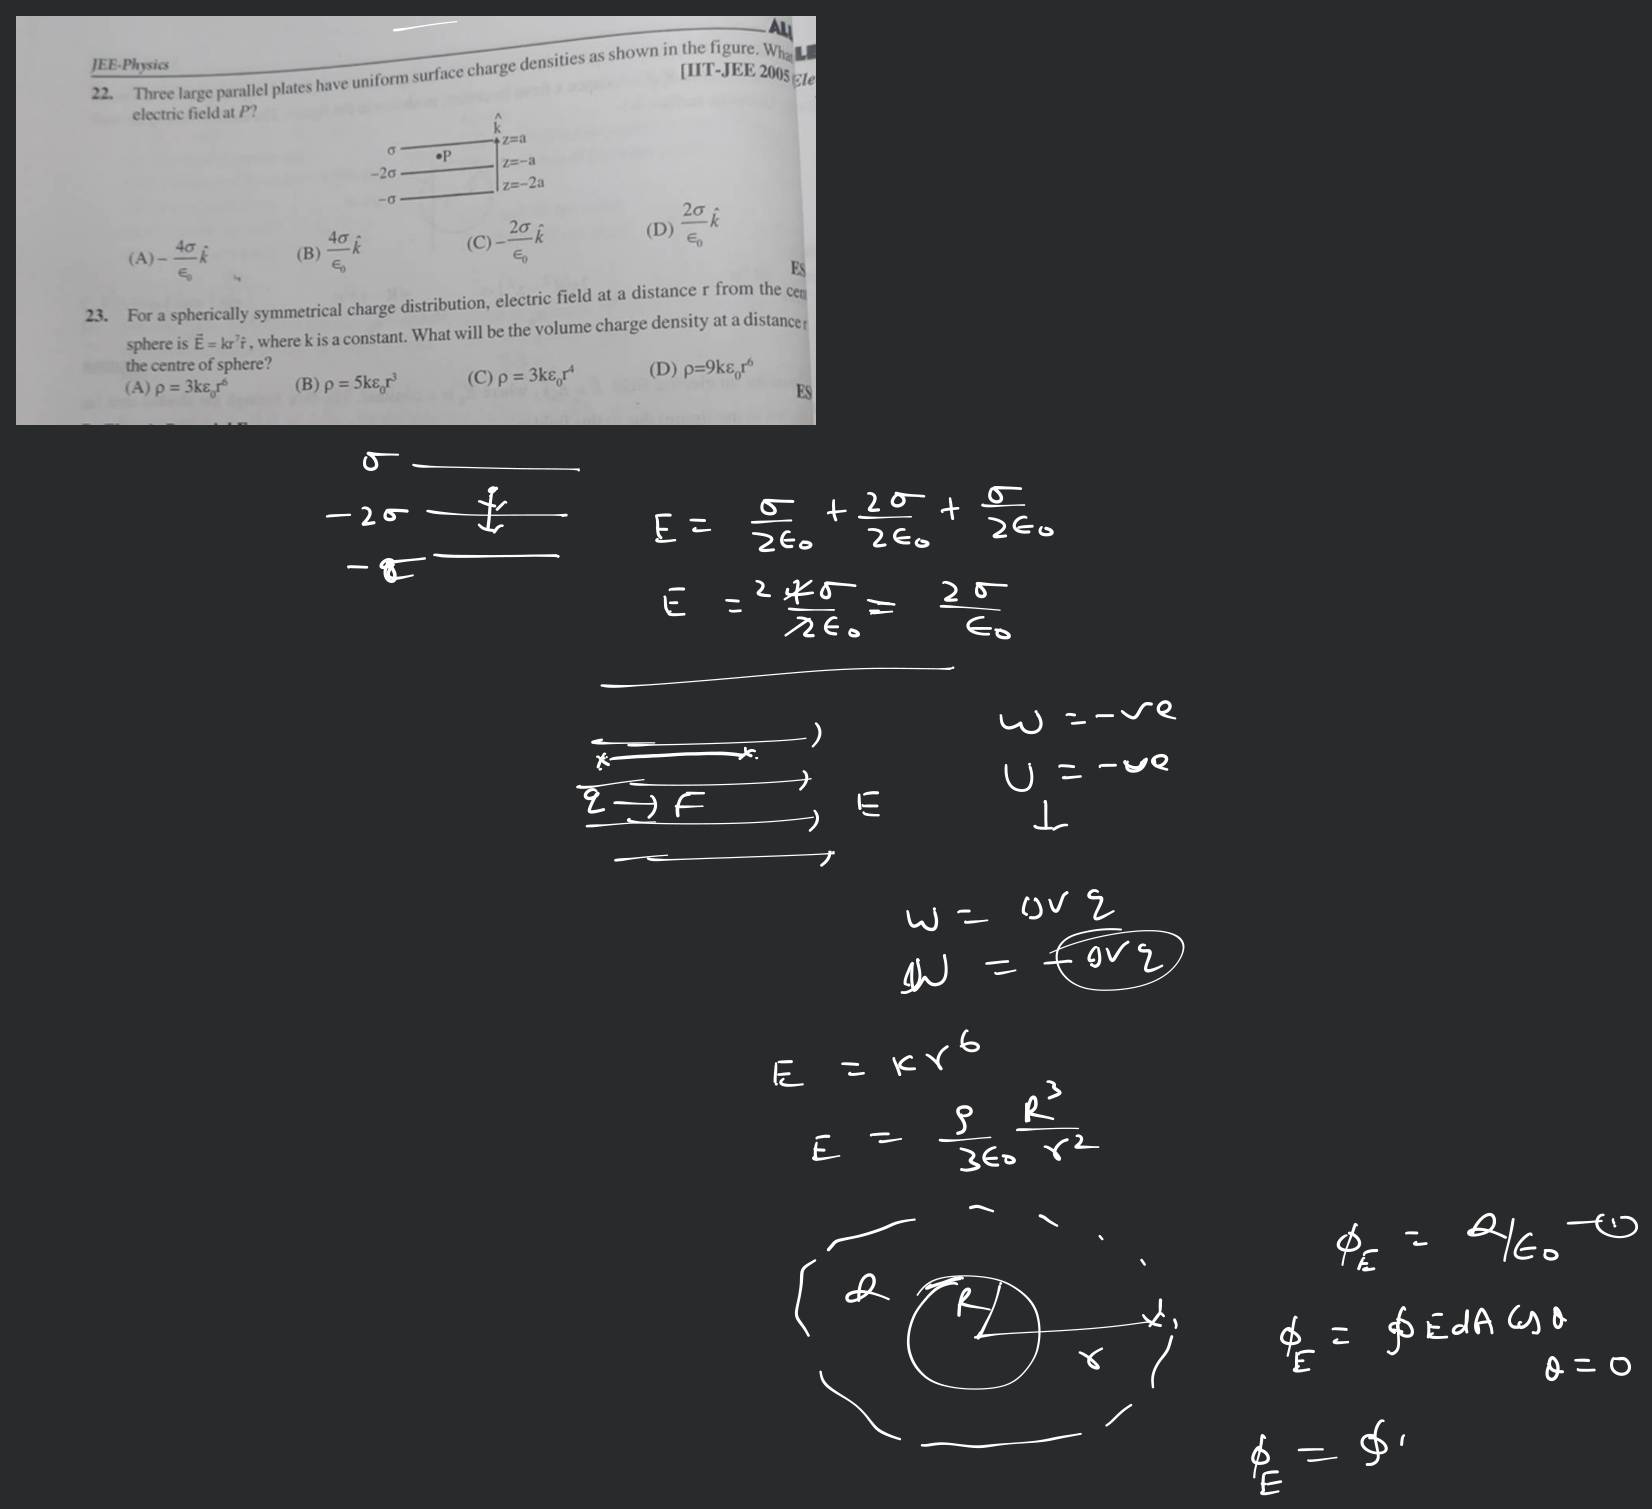 ALL
JEE-Physics
LE
22. Three large parallel plates have uniform surface charge densities as shown in the figure. What
[IIT-JEE 2005
Ele
electric field at P?
k̂
σ z=a
•P
-2σ z=-a
-σ z=-2a
(A) - 4σ/ϵ₀ k̂ (B) 4σ/ϵ₀ k̂ (C) - 2σ/ϵ₀ k̂ (D) 2σ/ϵ₀ k̂
ES
23. For a spherically symmetrical charge distribution, electric field at a distance r from the cen
sphere is E⃗ = kr⁷r̂, where k is a constant. What will be the volume charge density at a distance r
the centre of sphere?
(A) ρ = 3kε₀r⁶ (B) ρ = 5kε₀r³ (C) ρ = 3kε₀r⁴ (D) ρ=9kε₀r⁶
ES
σ
-2σ
-σ
E = σ/2ϵ₀ + 2σ/2ϵ₀ + σ/2ϵ₀
E = 2 4σ/2ϵ₀ = 2σ/ϵ₀
W = -ve
U = -ve
q → F E
W = ΔV q
W = -ΔV q
E = Kr⁶
E = ρ/3ϵ₀ R³/r²
Q R r
ϕ_E = Q/ϵ₀ —(1)
ϕ_E = ∮ E dA cos θ
θ = 0
ϕ_E = ∮